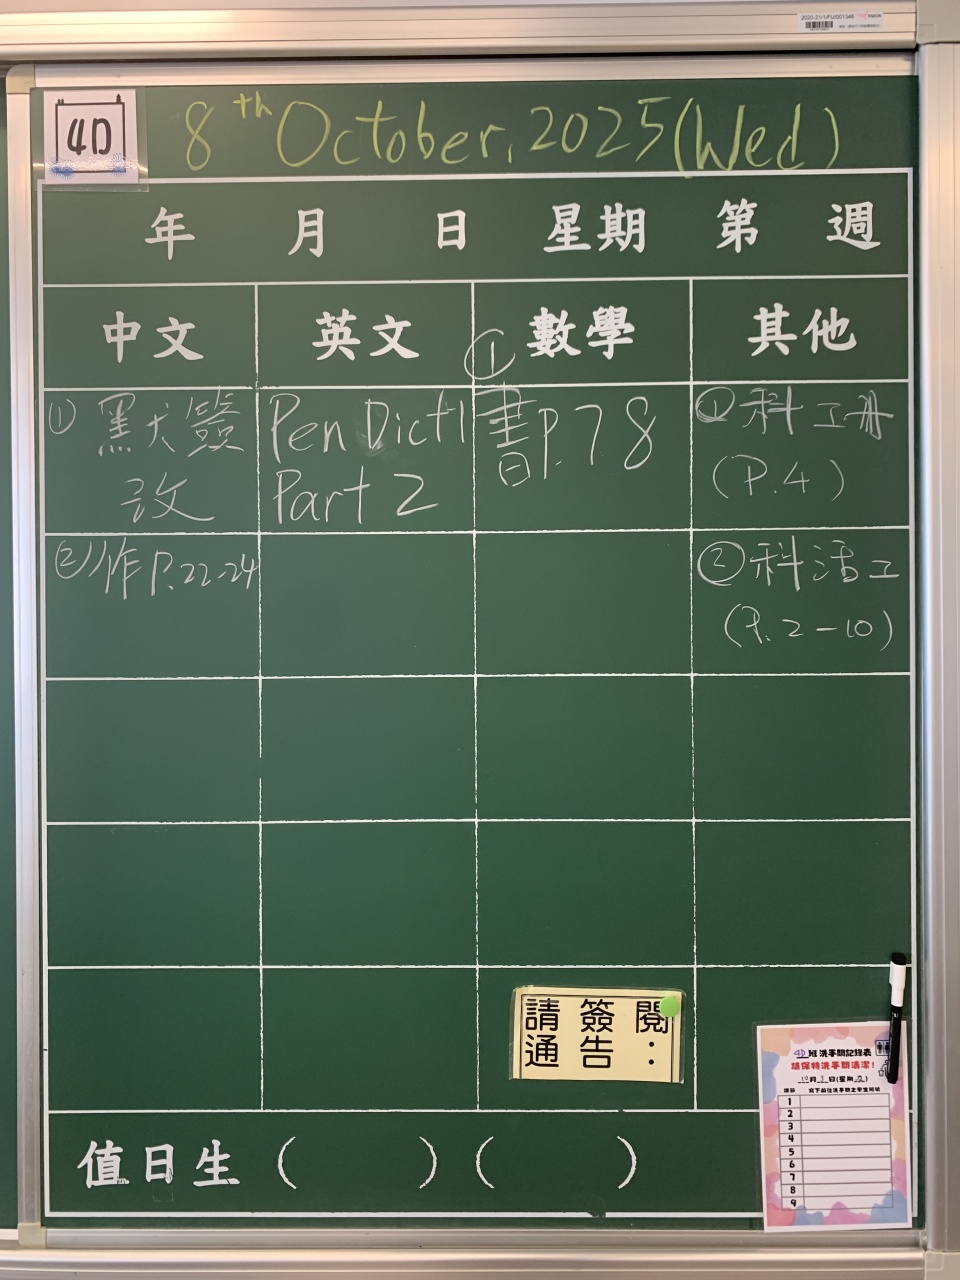 2020-21/1/FU/001346
4D
8th October, 2025 (Wed)
年 月 日 星期 第 週
中文 英文 數學 其他
① 默簽
改
② 作 P.22-24
Pen Dict 1
Part 2
①
書P.78
① 科工冊
(P.4)
② 科活工
(P.2-10)
請簽閱
通告：
4D班洗手間記錄表
請保持洗手間清潔！
10月 日(星期 )
1
2
3
4
5
6
7
8
9
值日生 ( ) ( )